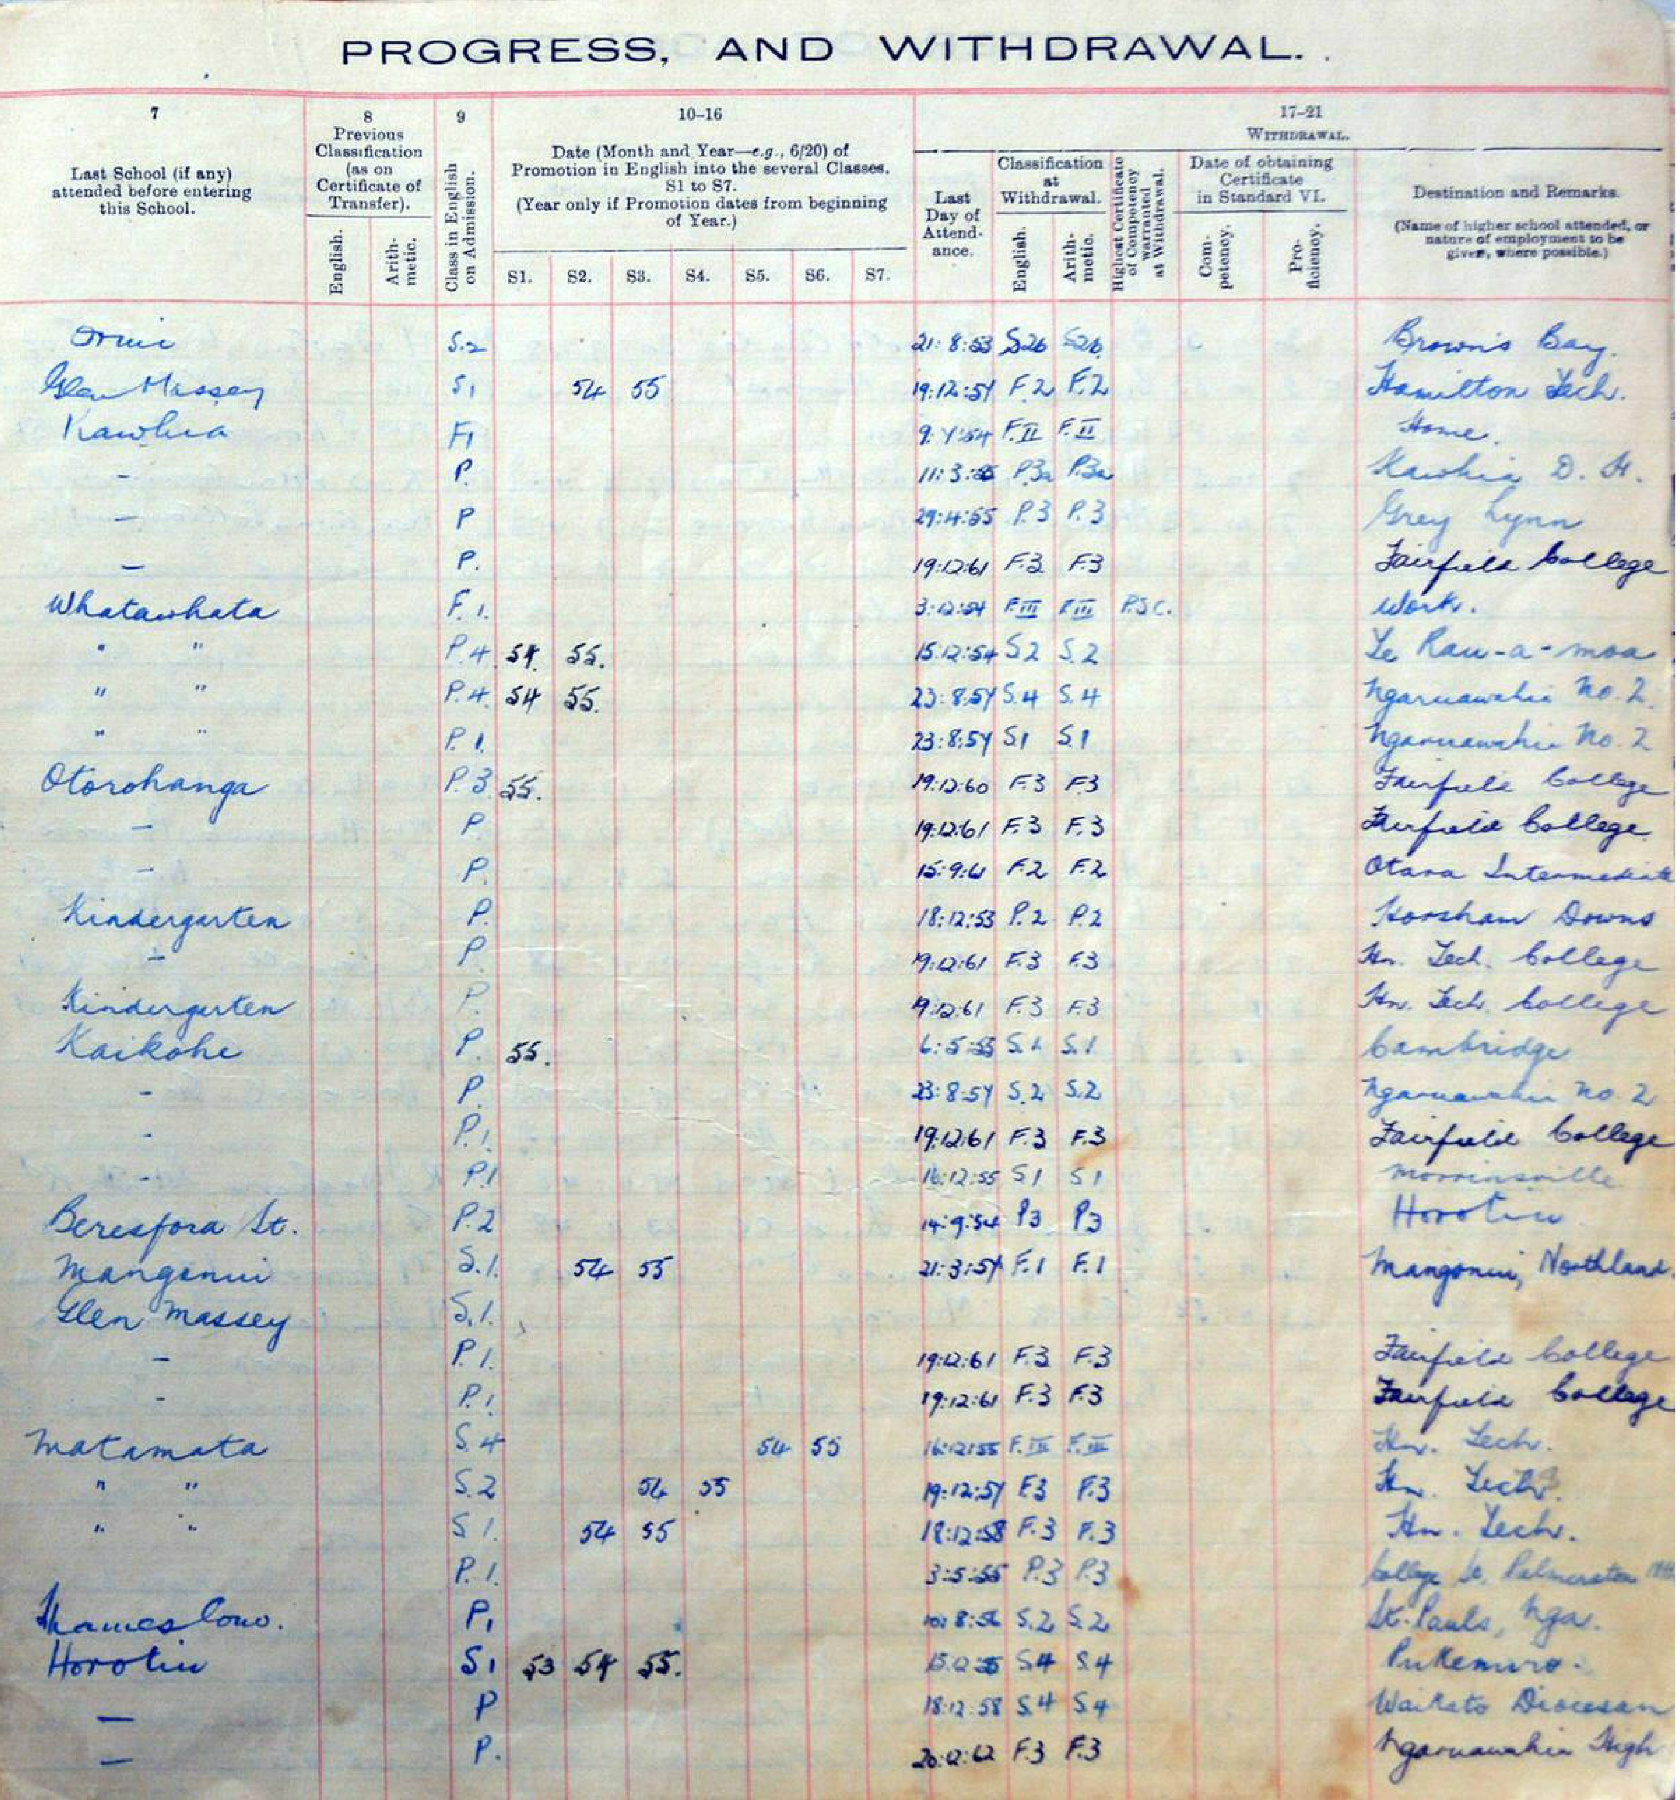 PROGRESS, AND WITHDRAWAL.
7
8
9
10–16
17–21
Last School (if any) attended before entering this School.
Previous Classification (as on Certificate of Transfer).
English.
Arith-metic.
Class in English on Admission.
Date (Month and Year—e.g., 6/20) of Promotion in English into the several Classes, S1 to S7.
(Year only if Promotion dates from beginning of Year.)
S1. S2. S3. S4. S5. S6. S7.
WITHDRAWAL.
Last Day of Attend-ance.
Classification at Withdrawal.
English.
Arith-metic.
Highest Certificate of Competency warranted at Withdrawal.
Date of obtaining Certificate in Standard VI.
Com-petency.
Pro-ficiency.
Destination and Remarks.
(Name of higher school attended, or nature of employment to be given, where possible.)
S.2 21:8:53 S2b S2b Brown's Bay.
Glen Massey S1 54 55 19:12:57 F.2 F.2 Hamilton Tech.
Kawhia F1 F.II F.II Home.
– P. P3a P3a Kawhia D. H.
– P 29:4:55 P.3 P.3 Grey Lynn
– P. 19:12:61 F.3 F.3 Fairfield College
Whatawhata F.1. 3:12:54 F.III F.III P.S.C. Work.
" " P.4 54. 55. 15:12:54 S2 S.2 Te Rau-a-moa
" " P.4. 54 55. 23:8:57 S.4 S.4 Ngaruawahia No. 2.
" " P.1. 23:8:57 S1 S.1 Ngaruawahia No. 2
Otorohanga P.3 55. 19:12:60 F.3 F.3 Fairfield College
– P. 19:12:61 F.3 F.3 Fairfield College.
– P. 15:9:61 F.2 F.2 Otara Intermediate
Kindergarten P. 18:12:53 P.2 P.2 Horsham Downs
– P. 19:12:61 F.3 F.3 Hn. Tech. College
Kindergarten P. 19:12:61 F.3 F.3 Hn. Tech. College
Kaikohe P. 55. 6:5:55 S.1 S.1 Cambridge
– P. 23:8:57 S.2 S.2 Ngaruawahia No. 2
– P.1. 19:12:61 F.3 F.3 Fairfield College
– P.1 16:12:55 S1 S1 Morrinsville
Beresford St. P.2 14:9:54 P3 P3 Horotiu
Mangonui S.1. 54 55 21:3:57 F.1 F.1 Mangonui, Northland.
Glen Massey S.1.
– P.1. 19:12:61 F.3 F.3 Fairfield College
– P.1. 19:12:61 F.3 F.3 Fairfield College
Matamata S.4 54 55 16:12:55 F.III F.III Hn. Tech.
" " S.2 54 55 19:12:57 F3 F.3 Hn. Tech.
" " S1. 54 55 18:12:58 F.3 F.3 Hn. Tech.
P.1. 3:5:55 P.3 P.3 College St. Palmerston
Thames Conv. P1 10:8:56 S.2 S.2 St. Pauls, Nga.
Horotiu S1 53 54 55. S4 S.4 Pukemiro.
– P 18:12:58 S.4 S.4 Waikato Diocesan
– P. F.3 F.3 Ngaruawahia High